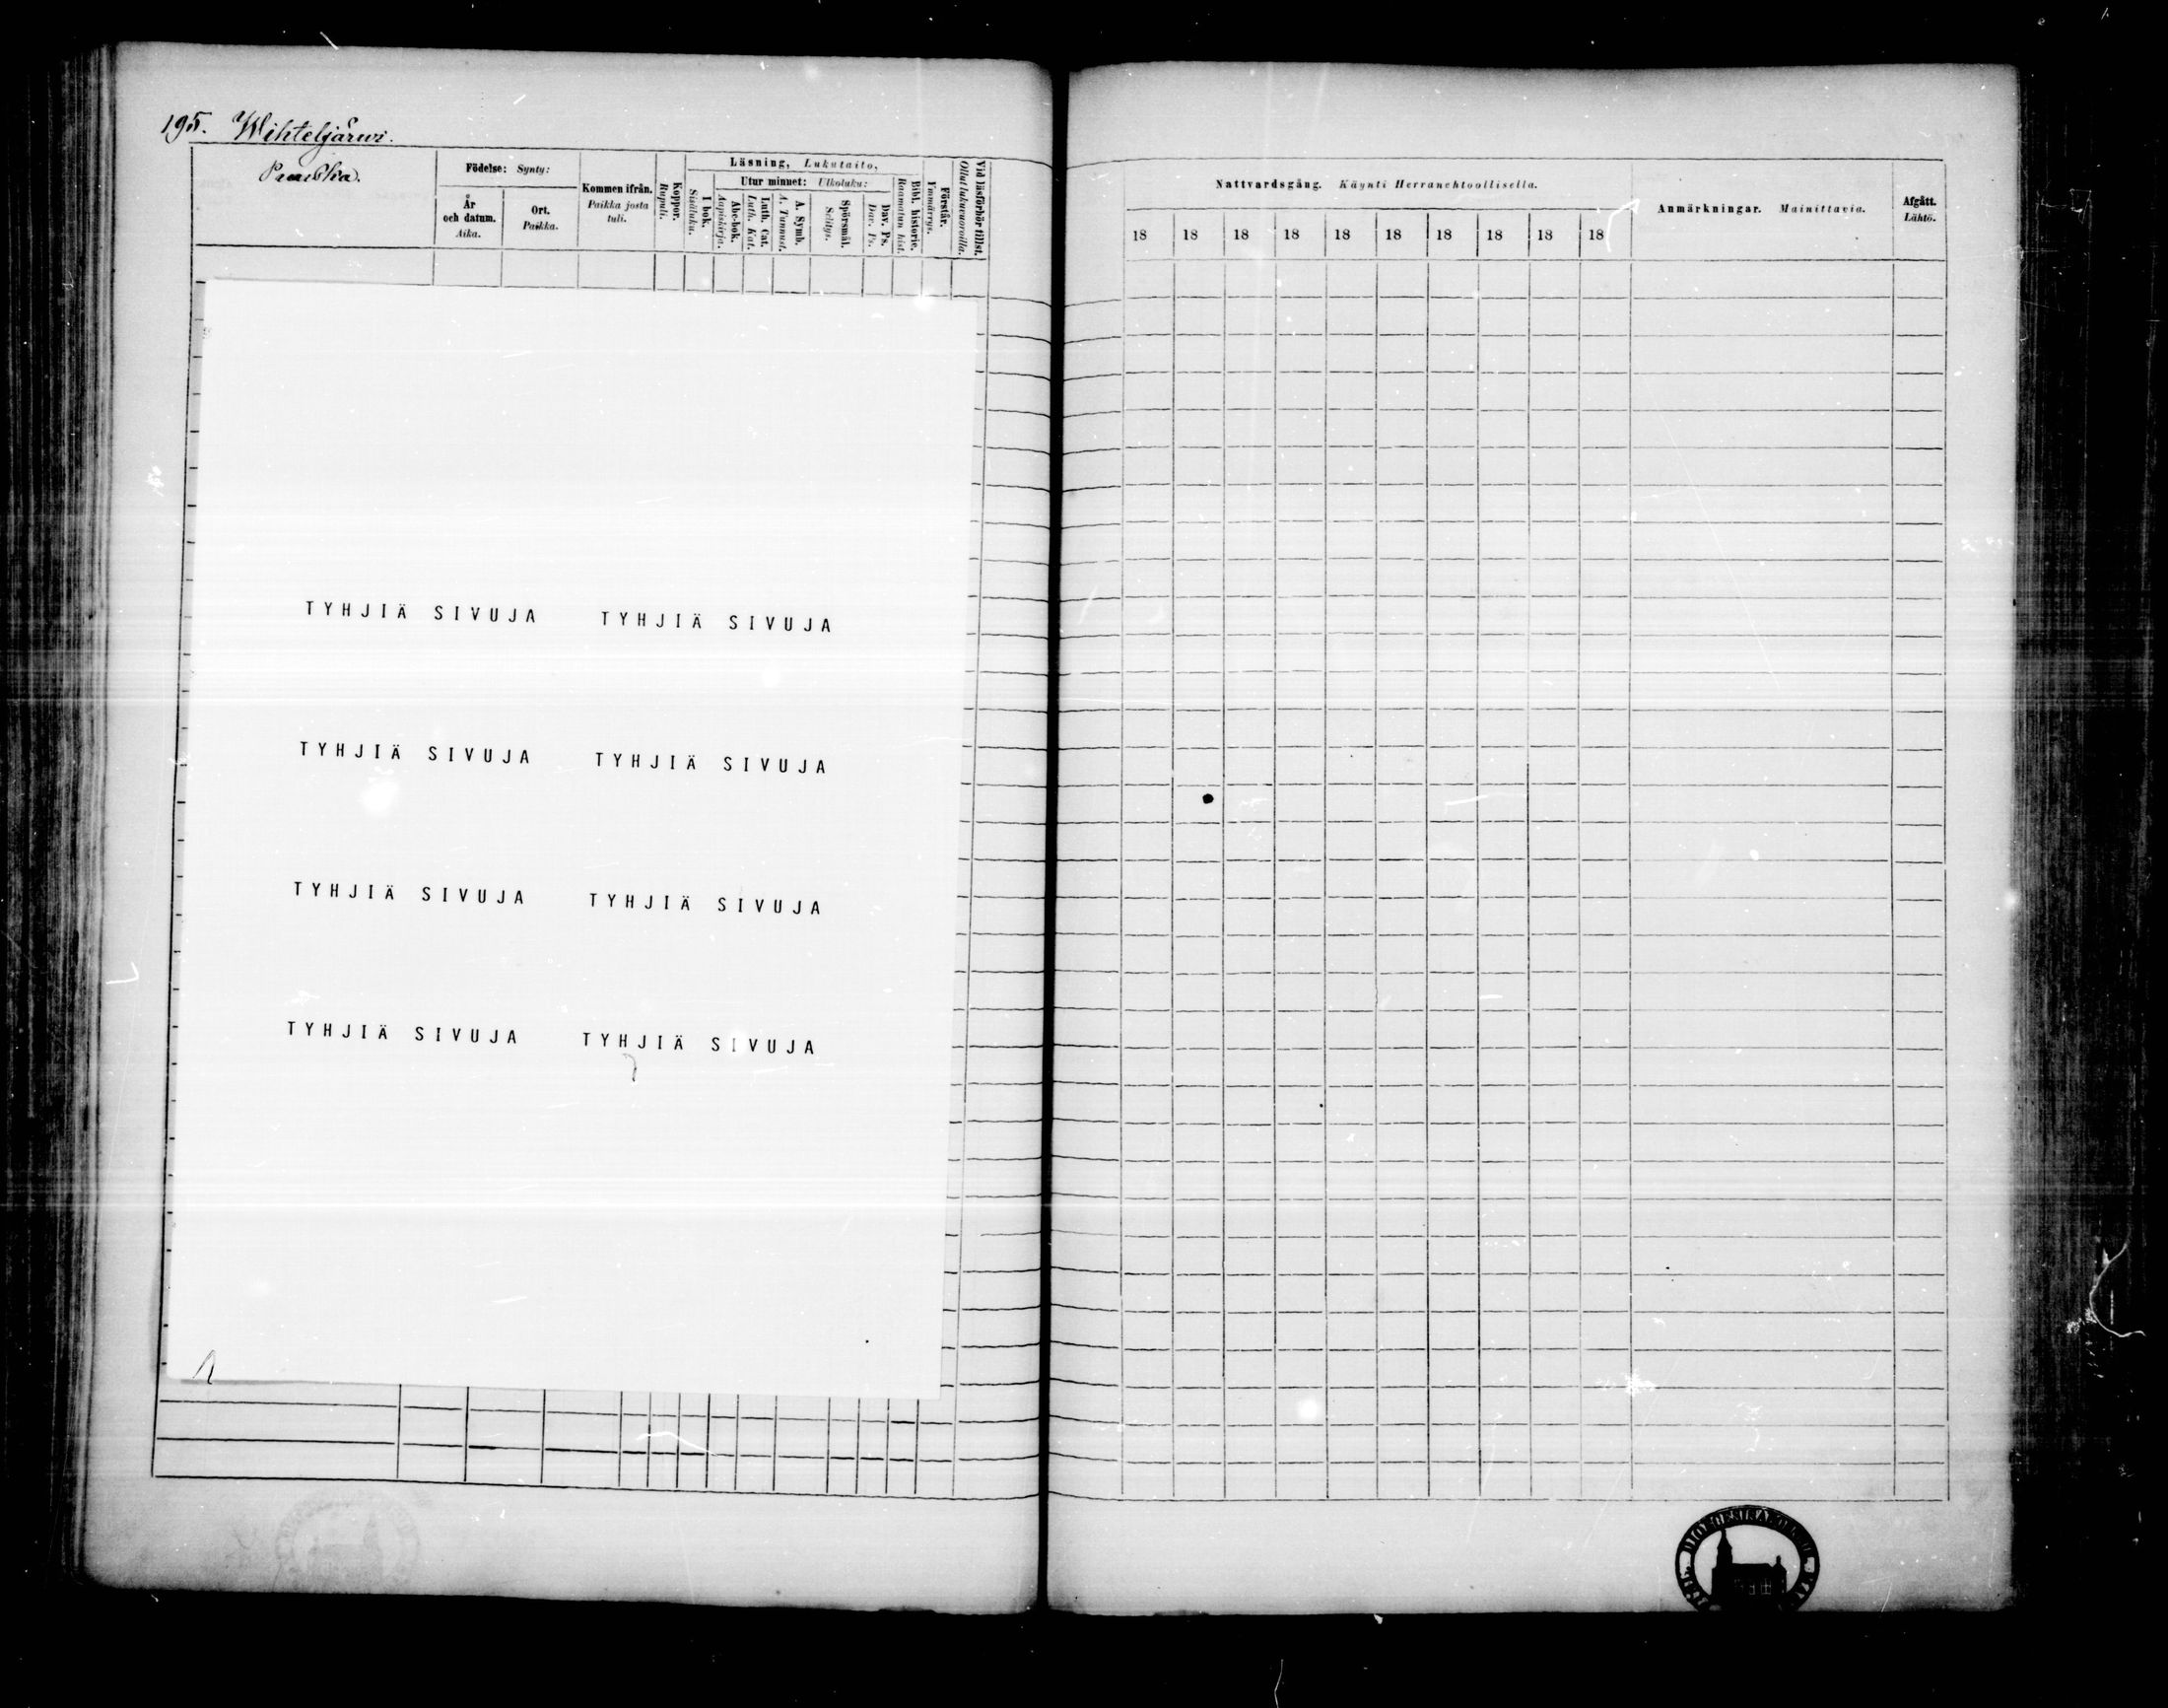 195. Wihteljärwi.
Födelse: Synty:
År och datum. Aika.
Ort. Paikka.
Kommen ifrån. Paikka josta tuli.
Koppor. Rupuli.
Läsning, Lukutaito,
I bok. Sisäluku.
Utur minnet: Ulkoluku:
Abc-bok. Aapiskirja.
Luth. Cat. Luth. Kat.
A. Symb. A. Tunnust.
Spörsmål. Selitys.
Dav. Ps. Dav. Ps.
Bibl. historie. Raamatun hist.
Förstår. Ymmärrys.
Vid läsförhör tillst. Ollut lukuvuoroilla.
TYHJIÄ SIVUJA TYHJIÄ SIVUJA
TYHJIÄ SIVUJA TYHJIÄ SIVUJA
TYHJIÄ SIVUJA TYHJIÄ SIVUJA
TYHJIÄ SIVUJA TYHJIÄ SIVUJA
Nattvardsgång. Käynti Herranehtoollisella.
18 18 18 18 18 18 18 18 18 18
Anmärkningar. Mainittavia.
Afgått. Lähtö.